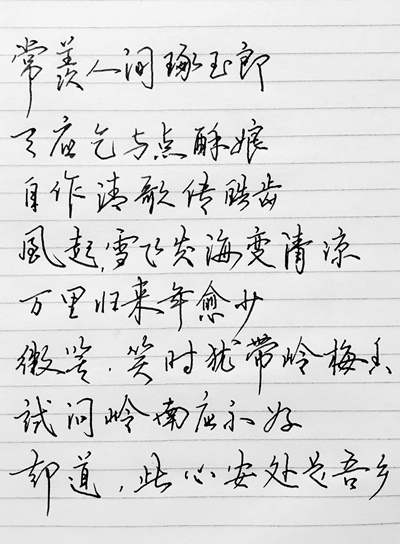 常羡人间琢玉郎
天应乞与点酥娘
自作清歌传皓齿
風起,雪飞炎海变清凉
万里归来年愈少
微笑,笑时犹带岭梅香
试问岭南应不好
却道,此心安处是吾乡